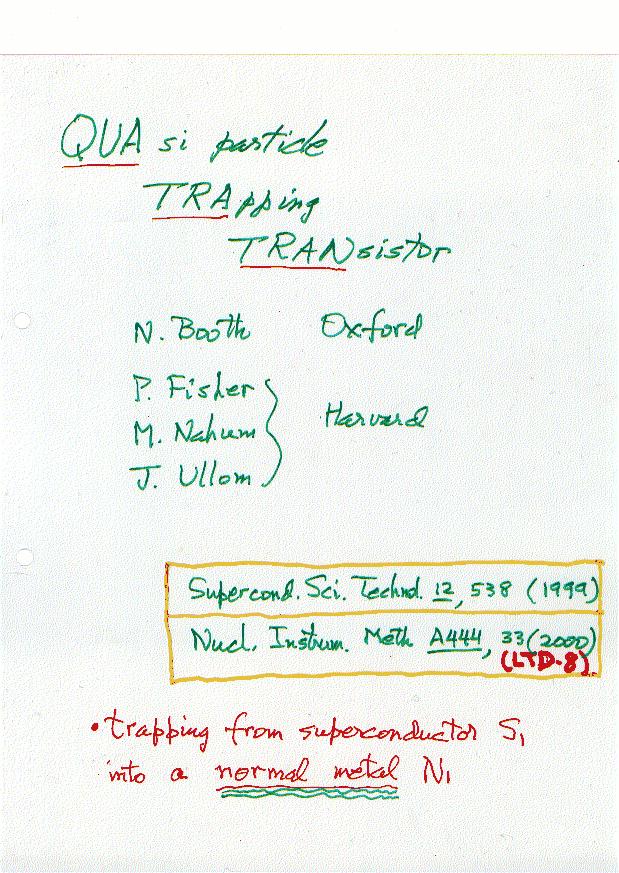 QUAsi particle
TRApping
TRANsistor
N. Booth Oxford
P. Fisher
M. Nahum Harvard
J. Ullom
Supercond. Sci. Technol. 12, 538 (1999)
Nucl. Instrum. Meth A444, 33(2000)
(LTD-8)
• trapping from superconductor S₁
into a normal metal N₁